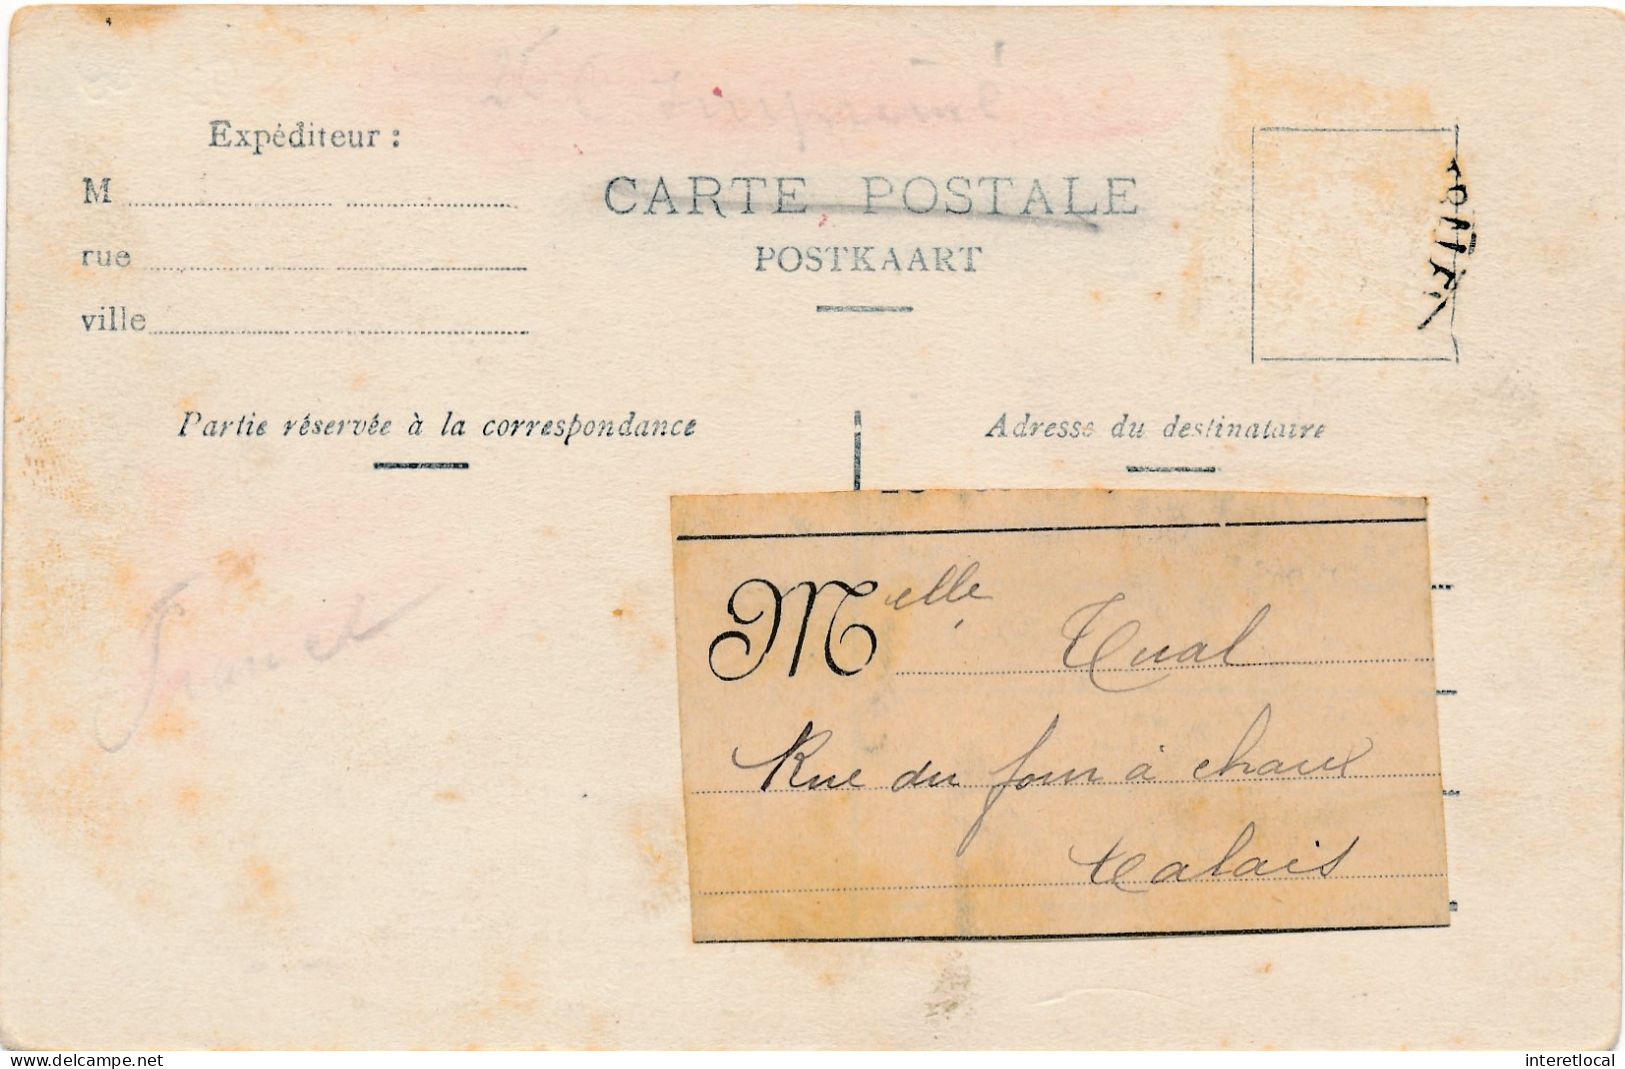 Expéditeur :
M
rue
ville
CARTE POSTALE
POSTKAART
Partie réservée à la correspondance
Adresse du destinataire
Melle Tual
Rue du four à chaux
Calais
www.delcampe.net
interetlocal